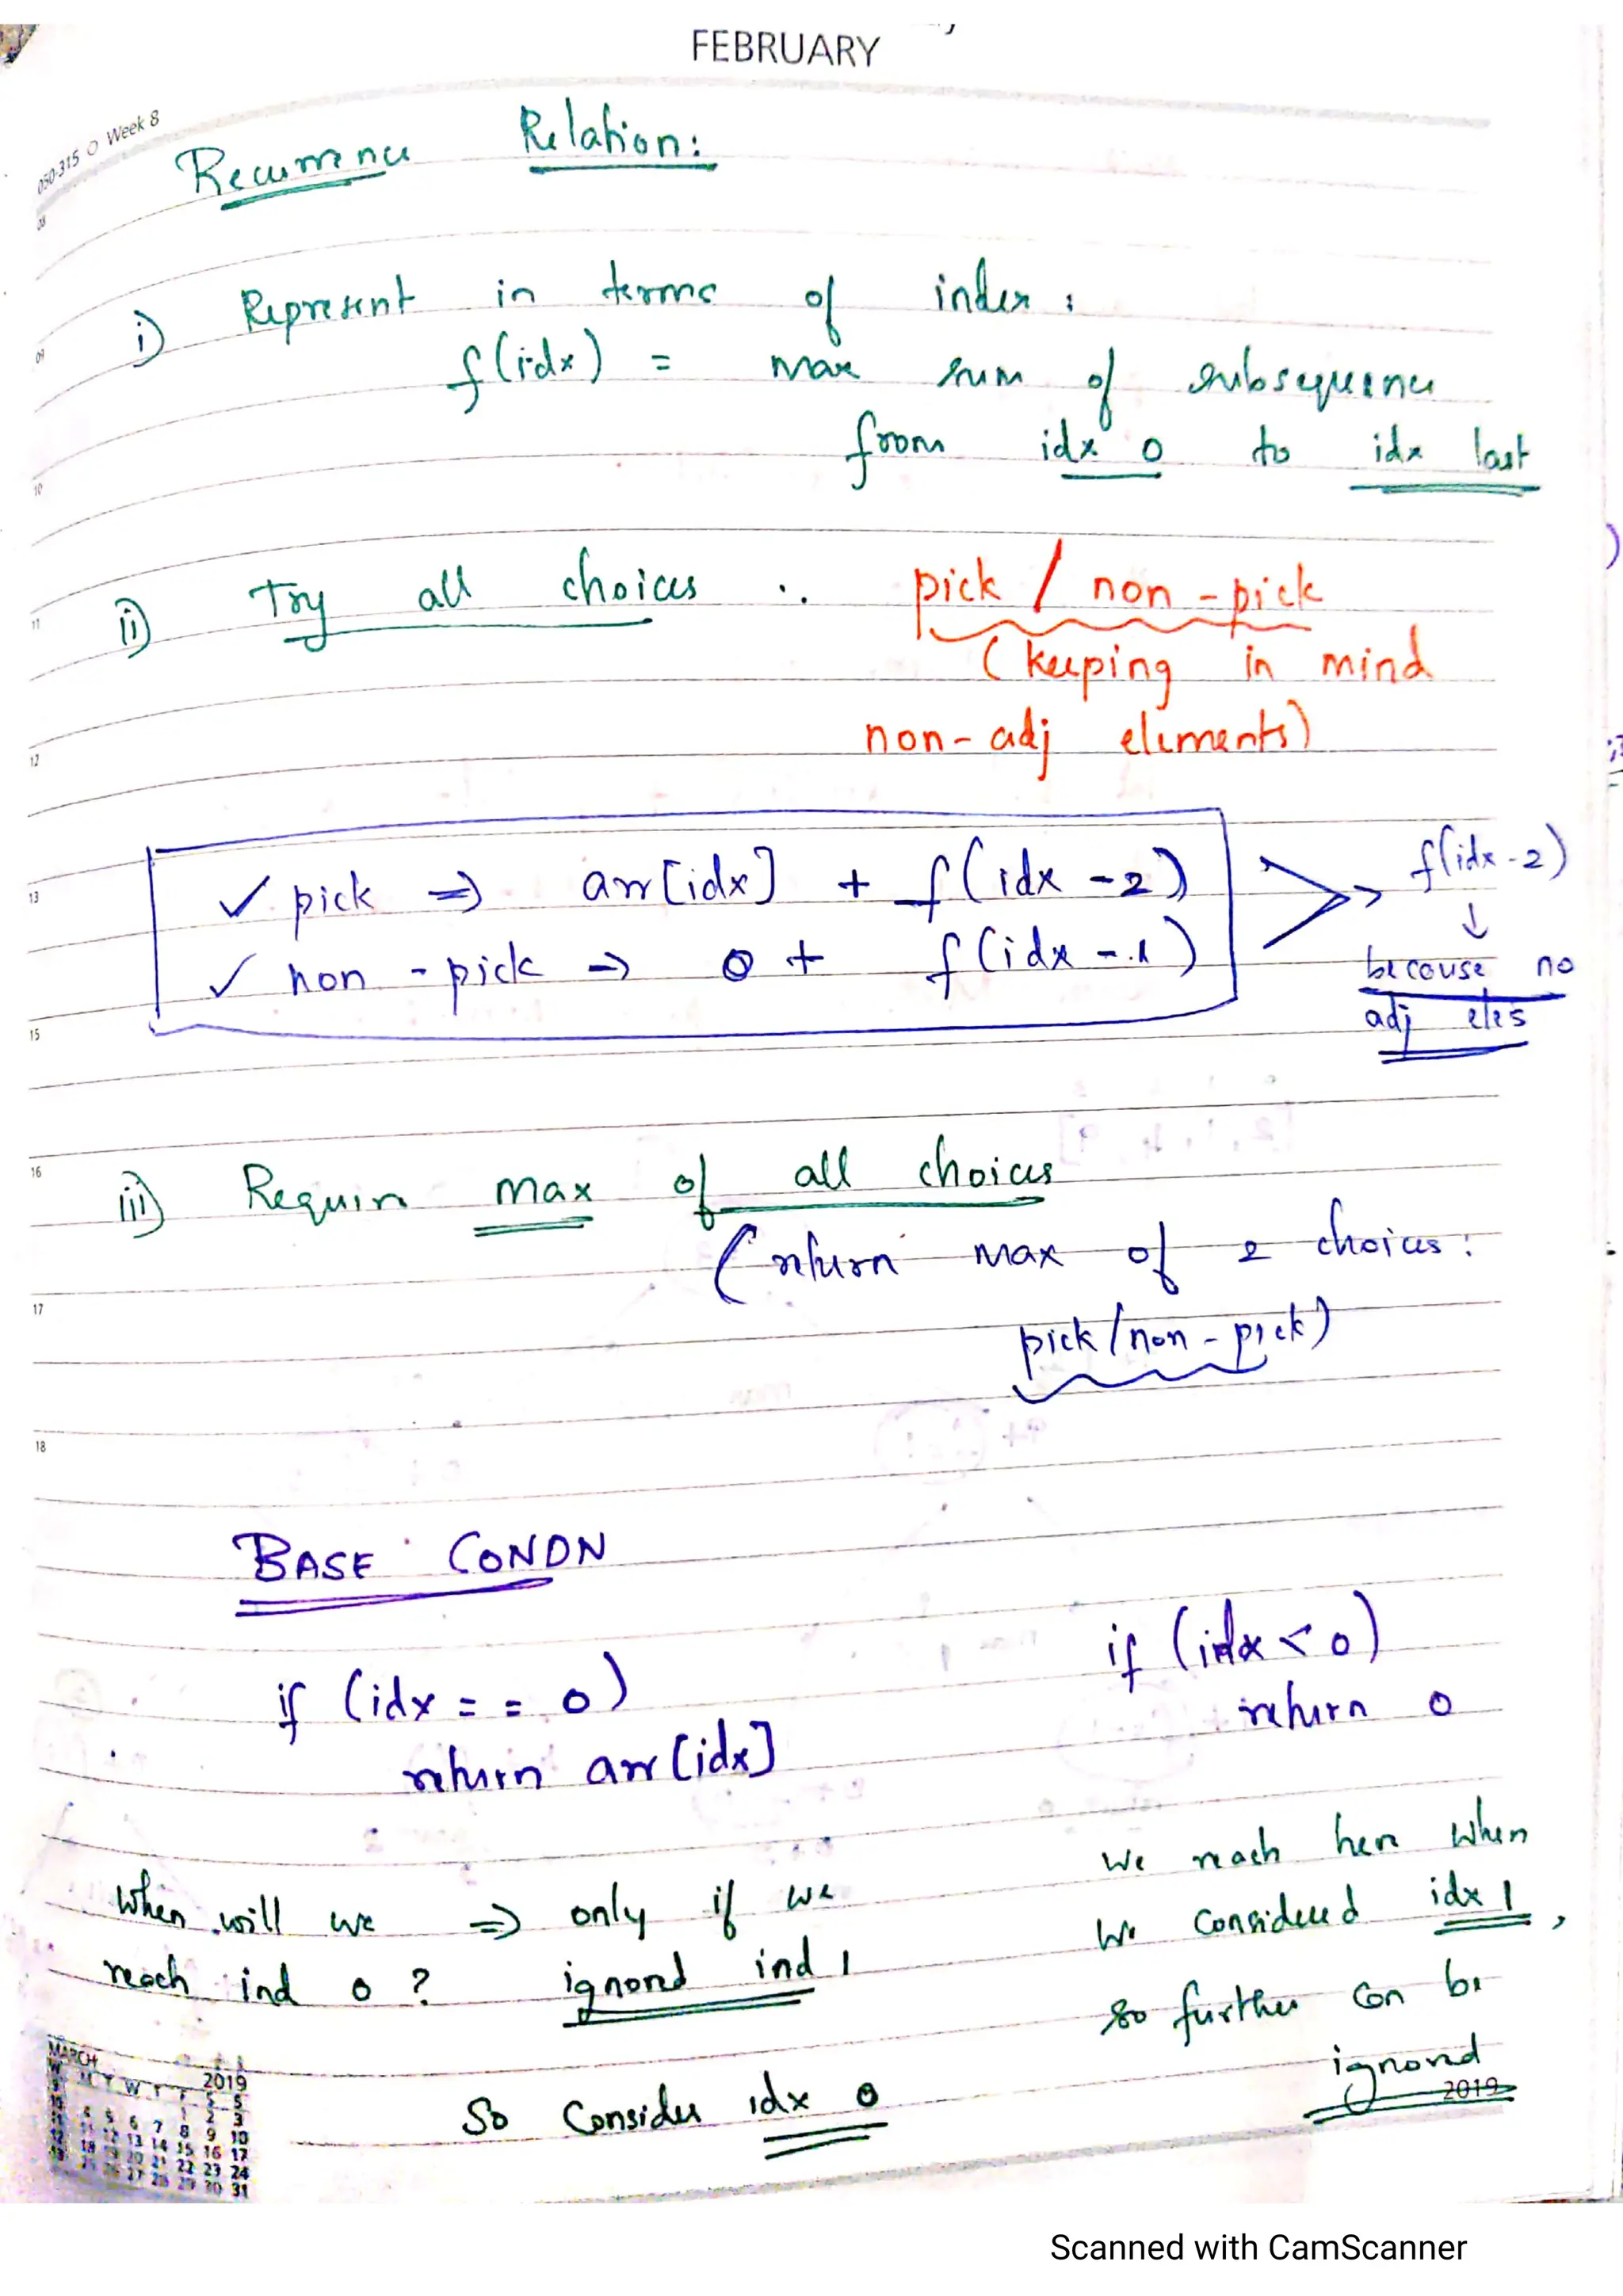 FEBRUARY
050-315 O Week 8
Recurrence Relation:
08
i) Represent in terms of index :
09
f(idx) = max sum of subsequence
from idx 0 to idx last
10
ii) Try all choices : pick / non-pick
11
(keeping in mind
non-adj elements)
12
✓ pick => arr[idx] + f(idx-2)
13
✓ non-pick → 0 + f(idx-1)
f(idx-2)
↓
because no
adj eles
15
16
iii) Require max of all choices
(return max of 2 choices:
17
pick/non-pick)
18
BASE CONDN
if (idx == 0)
return arr[idx]
When will we => only if we
reach ind 0 ? ignored ind 1
So Consider idx 0
if (idx < 0)
return 0
We reach here when
we considered idx 1,
so further can be
ignored
MARCH 2019
2019
Scanned with CamScanner